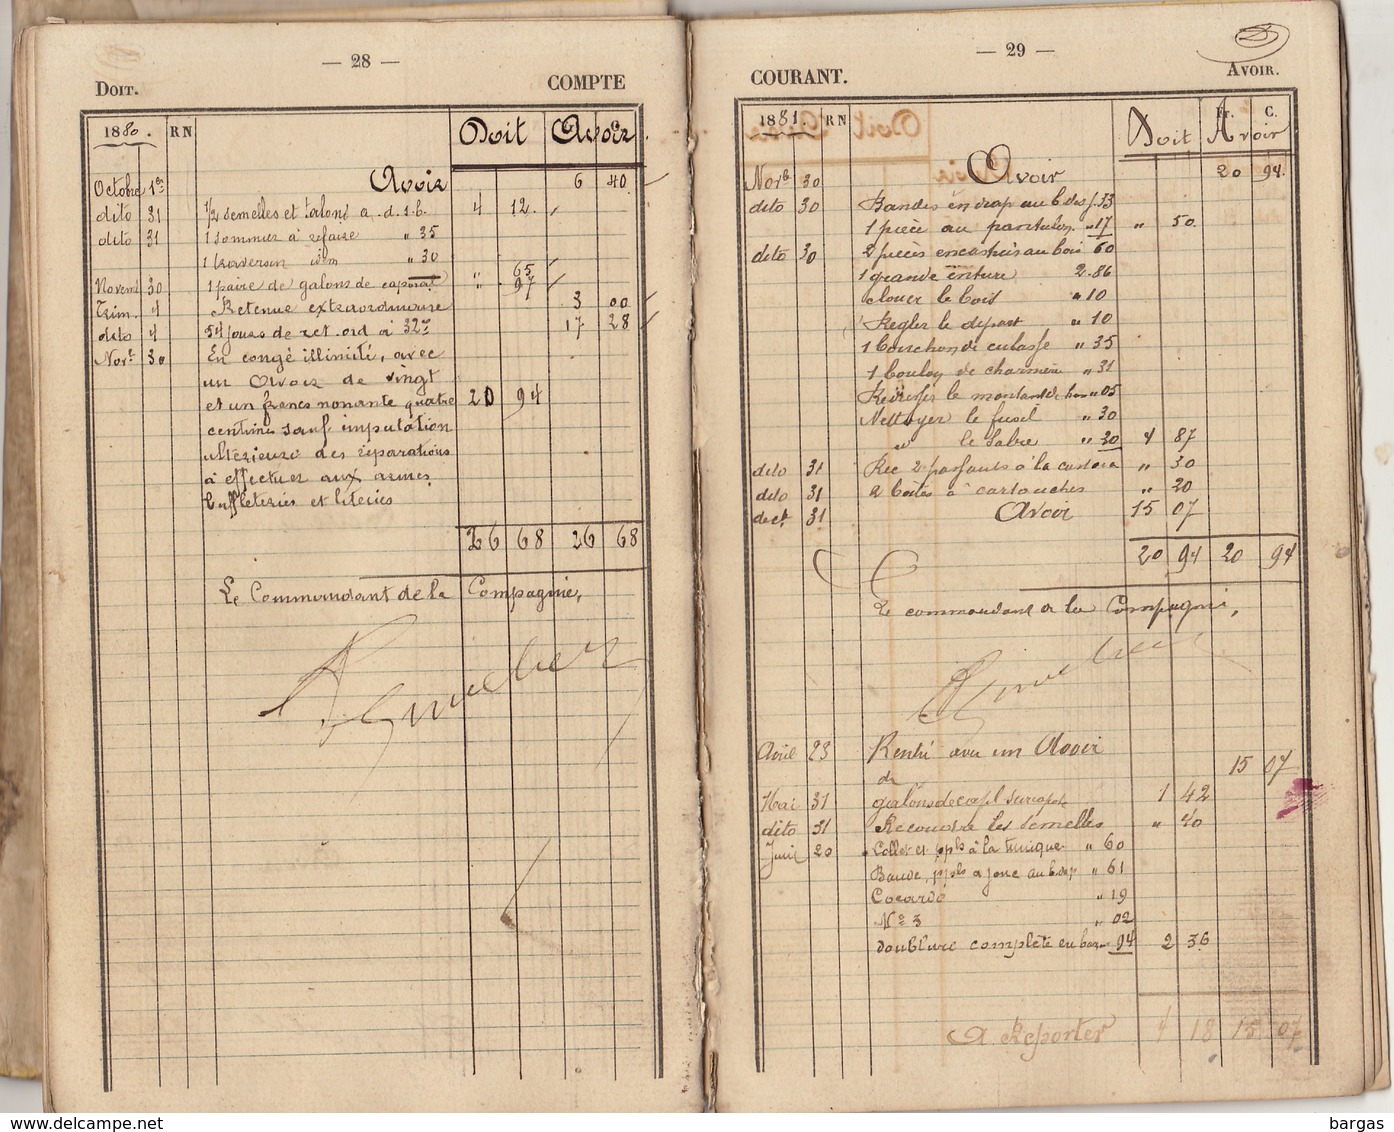 — 28 —
DOIT. COMPTE
1880. R N Doit Avoir
Avoir 6 40
Octobre 1er
dito 31 1/2 semelles et talons a . d . s . b. 4 12.
dito 31 1 sommier à refaire " 35
1 traversin idem " 30
" 65
Novemb 30 1 paire de galons de caporal " 97
Trim. 4 Retenue extraordinaire 3 00
dito 4 54 jours de ret. ord à 32c 17 28
Novb 30 En congé illimité, avec
un Avoir de vingt
et un francs nonante quatre 20 94
centimes sauf imputation
ultérieure des réparations
à effectuer aux armes,
buffleteries et literies
26 68 26 68
Le Commandant de la Compagnie,
— 29 —
COURANT. AVOIR.
1881. R N Doit Avoir
Fr. C.
Novb 30 Avoir 20 94
dito 30 Bandes en drap au b. des j. 33
1 pièce au pantalon " 17 " 50
dito 30 2 pièces encastrées au bois 60
1 grande enture 2.86
clouer le bois " 10
Regler le départ " 10
1 bouchon de culasse " 35
1 boulon de charnière " 31
Redresser le montant de " 05
Nettoyer le fusil " 30
" le sabre " 30 4 87
dito 31 Rec 2 passants à la custode " 30
dito 31 2 boites à cartouches " 20
decb 31 Avoir 15 07
20 94 20 94
Le commandant de la Compagnie,
Avril 23 Rentré avec un Avoir
de 15 07
Mai 31 galons de capl sur capote 1 42
dito 31 Recoudre les semelles " 40
Juin 20 Collet et ppls à la tunique " 60
Bande, ppls a jonc au b. de p " 61
Cocarde " 19
No 3 " 02
doublure complète en bas 94 2 36
A Reporter 4 18 15 07
bargas